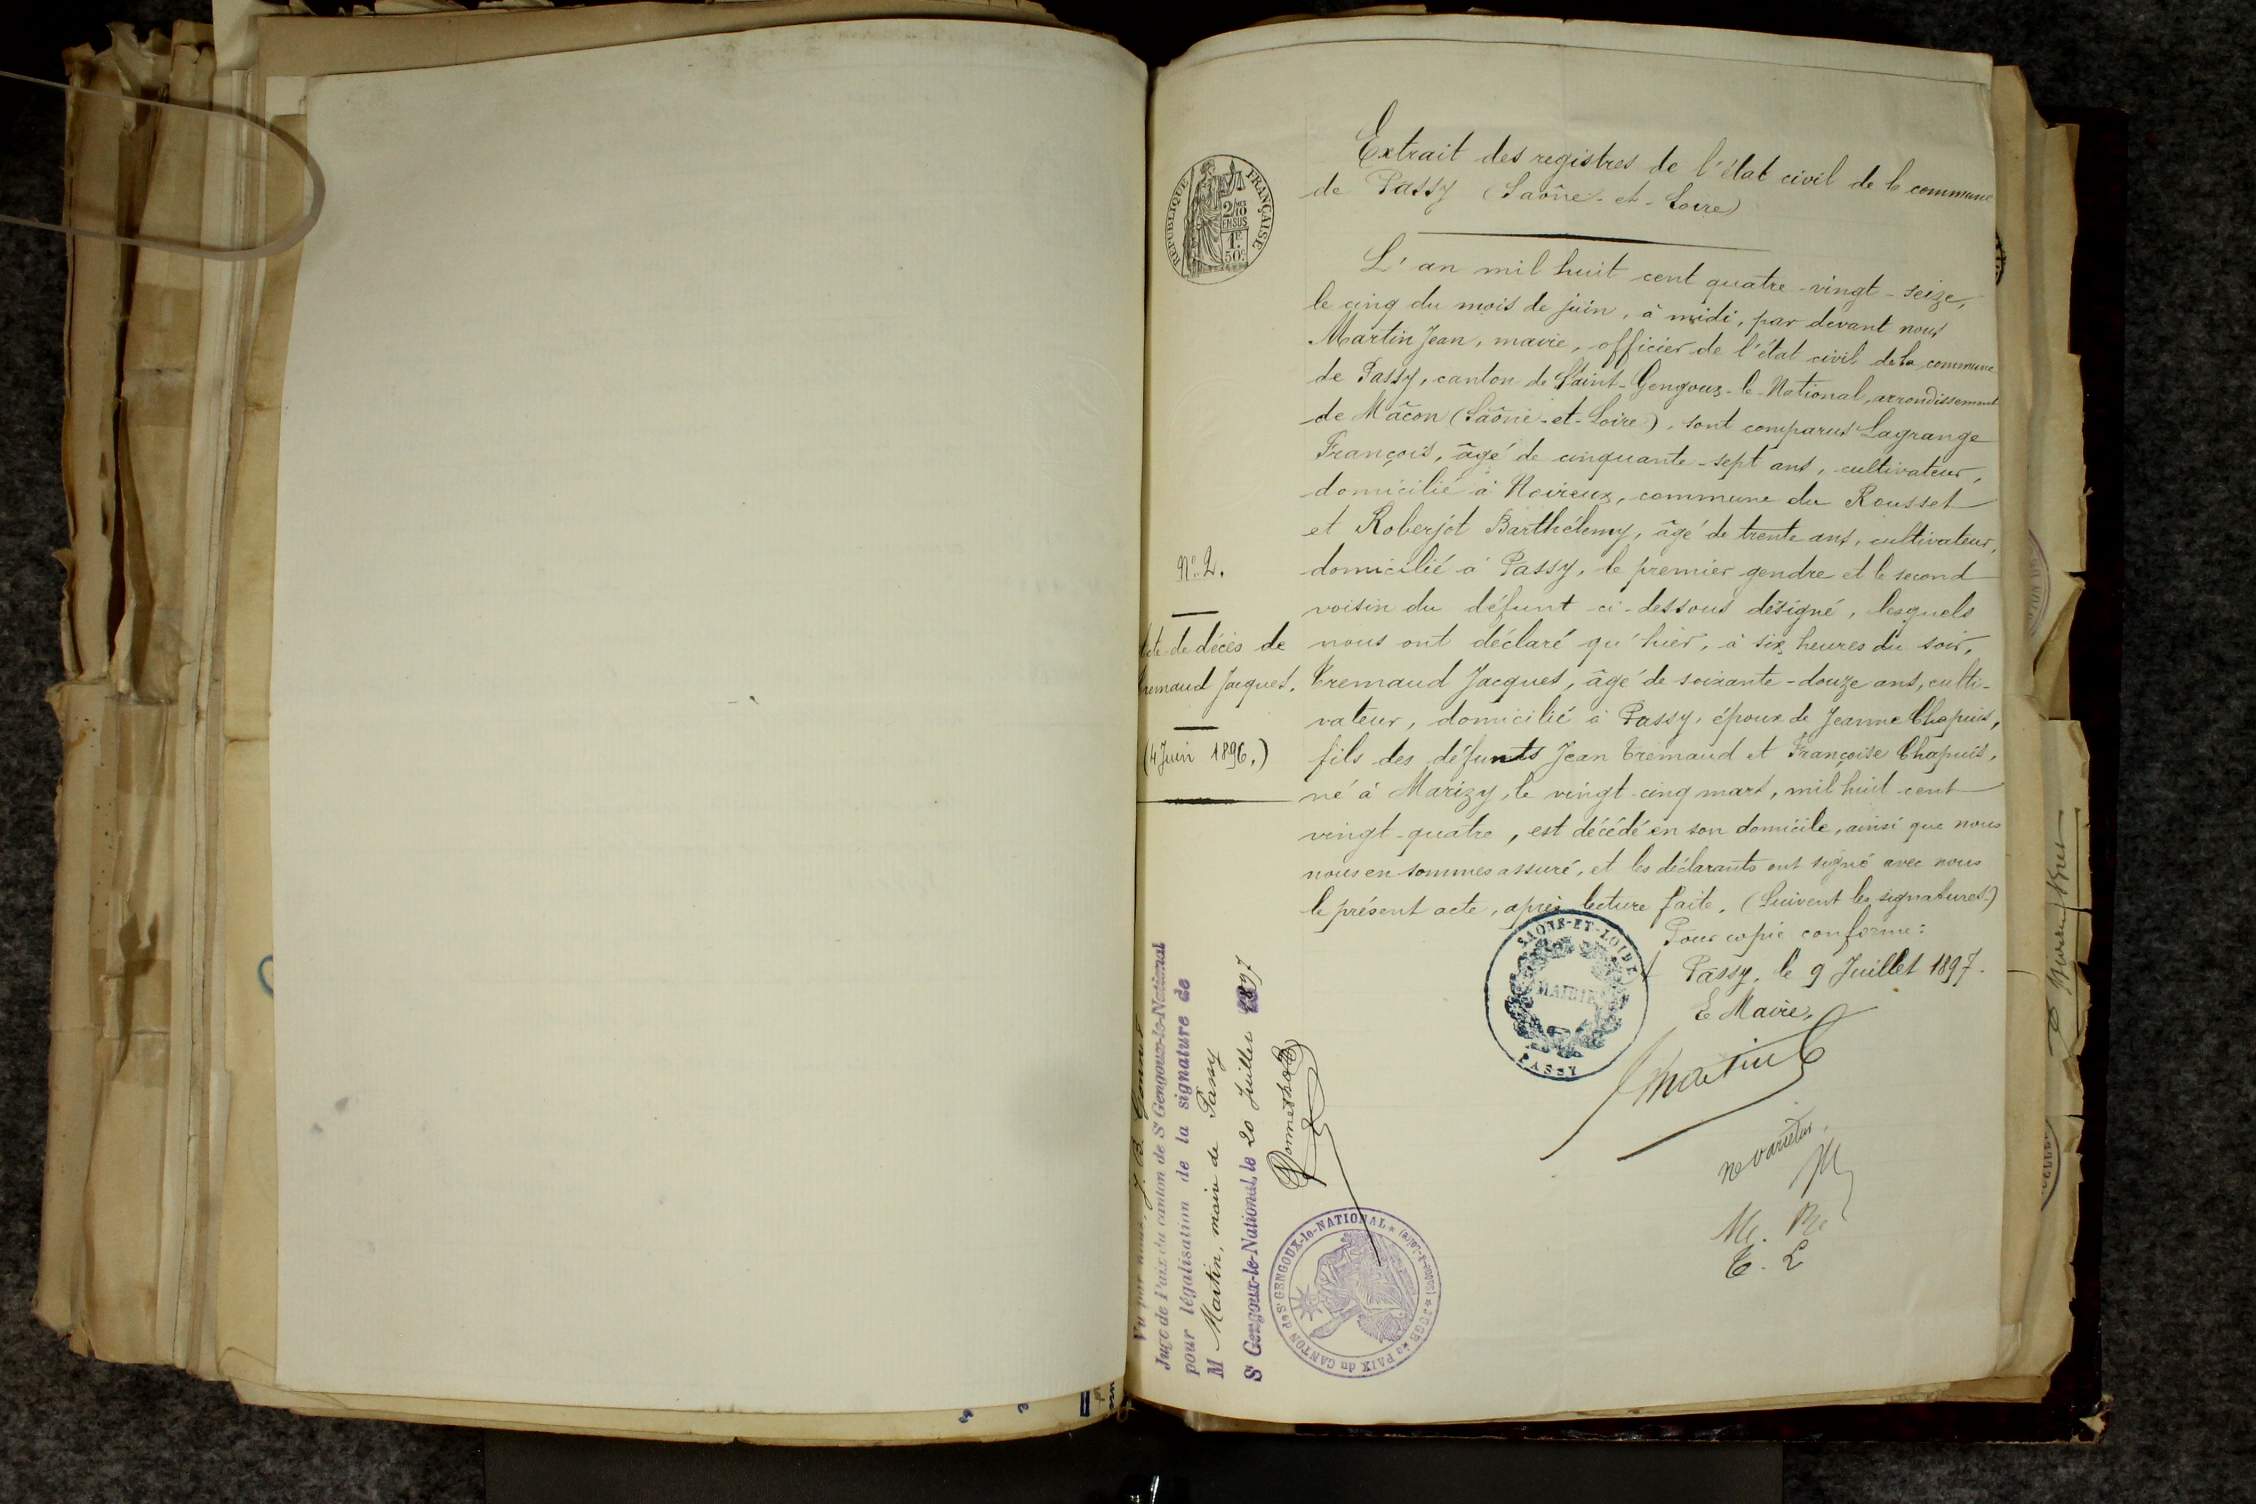 Extrait des registres de l'état civil de la commune
de Passy (Saône-et-Loire)
RÉPUBLIQUE FRANÇAISE
2/10
EN SUS
1F
50c
L'an mil huit cent quatre-vingt-seize,
le cinq du mois de juin, à midi, par devant nous
Martin Jean, maire, officier de l'état civil de la commune
de Passy, canton de Saint-Gengoux-le-National, arrondissement
de Mâcon (Saône-et-Loire), sont comparus Lagrange
François, âgé de cinquante-sept ans, cultivateur,
domicilié à Noireux, commune du Rousset
et Roberjot Barthélemy, âgé de trente ans, cultivateur,
domicilié à Passy, le premier gendre et le second
voisin du défunt ci-dessous désigné, lesquels
nous ont déclaré qu'hier, à six heures du soir,
Tremaud Jacques, âgé de soixante-douze ans, culti-
vateur, domicilié à Passy, époux de Jeanne Chapuis,
fils des défunts Jean Tremaud et Françoise Chapuis,
né à Marizy, le vingt-cinq mars, mil huit cent
vingt-quatre, est décédé en son domicile, ainsi que nous
nous en sommes assuré, et les déclarants ont signé avec nous
le présent acte, après lecture faite. (Suivent les signatures)
Pour copie conforme:
Passy, le 9 Juillet 1897.
Le Maire,
Martin
SAONE-ET-LOIRE
MAIRIE
PASSY
ne varietur
N° 2.
Acte de décès de
Tremaud Jacques.
(4 Juin 1896.)
Vu par nous, J. B.
Juge de Paix du canton de St Gengoux-le-National
pour légalisation de la signature de
M Martin, maire de Passy
St Gengoux-le-National, le 20 Juillet 1897
JUGE de PAIX du CANTON de St GENGOUX-le-NATIONAL